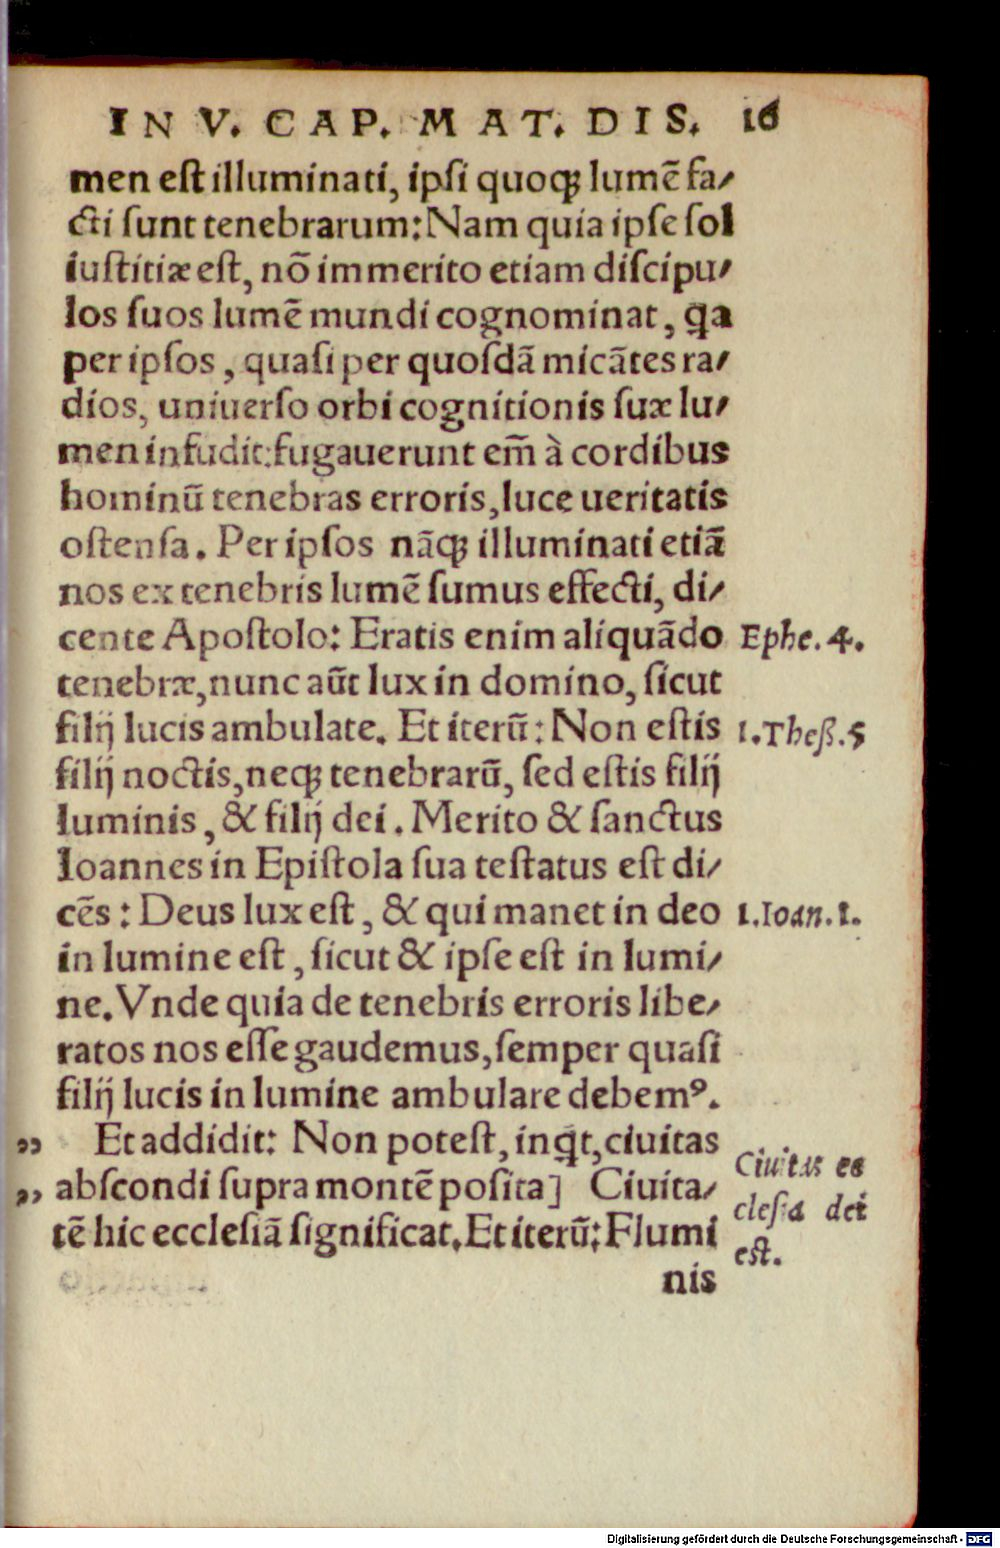 IN V. CAP. MAT. DIS. 16
men eſt illuminati, ipſi quoqꝫ lumẽ fa⸗
cti ſunt tenebrarum: Nam quia ipſe ſol
iuſtitiæ eſt, nõ immerito etiam diſcipu⸗
los ſuos lumẽ mundi cognominat, ꝗa
per ipſos, quaſi per quoſdã micãtes ra⸗
dios, uniuerſo orbi cognitionis ſuæ lu⸗
men infudit: fugauerunt em̃ à cordibus
hominũ tenebras erroris, luce ueritatis
oſtenſa. Per ipſos nãqꝫ illuminati etiã
nos ex tenebris lumẽ ſumus effecti, di⸗
cente Apoſtolo: Eratis enim aliquãdo
Ephe. 4.
tenebræ, nunc aũt lux in domino, ſicut
filij lucis ambulate. Et iterũ: Non eſtis
1. Theß. 5
filij noctis, neqꝫ tenebrarũ, ſed eſtis filij
luminis, & filij dei. Merito & ſanctus
Ioannes in Epiſtola ſua teſtatus eſt di⸗
cẽs: Deus lux eſt, & qui manet in deo
1. Ioan. 1.
in lumine eſt, ſicut & ipſe eſt in lumi⸗
ne. Vnde quia de tenebris erroris libe⸗
ratos nos eſſe gaudemus, ſemper quaſi
filij lucis in lumine ambulare debemꝰ.
„ Et addidit: Non poteſt, inꝗt, ciuitas
„ abſcondi ſupra montẽ poſita] Ciuita⸗
tẽ hic eccleſiã ſignificat. Et iterũ: Flumi
Ciuitas ec
cleſia dei
eſt.
nis
Digitalisierung gefördert durch die Deutsche Forschungsgemeinschaft - DFG